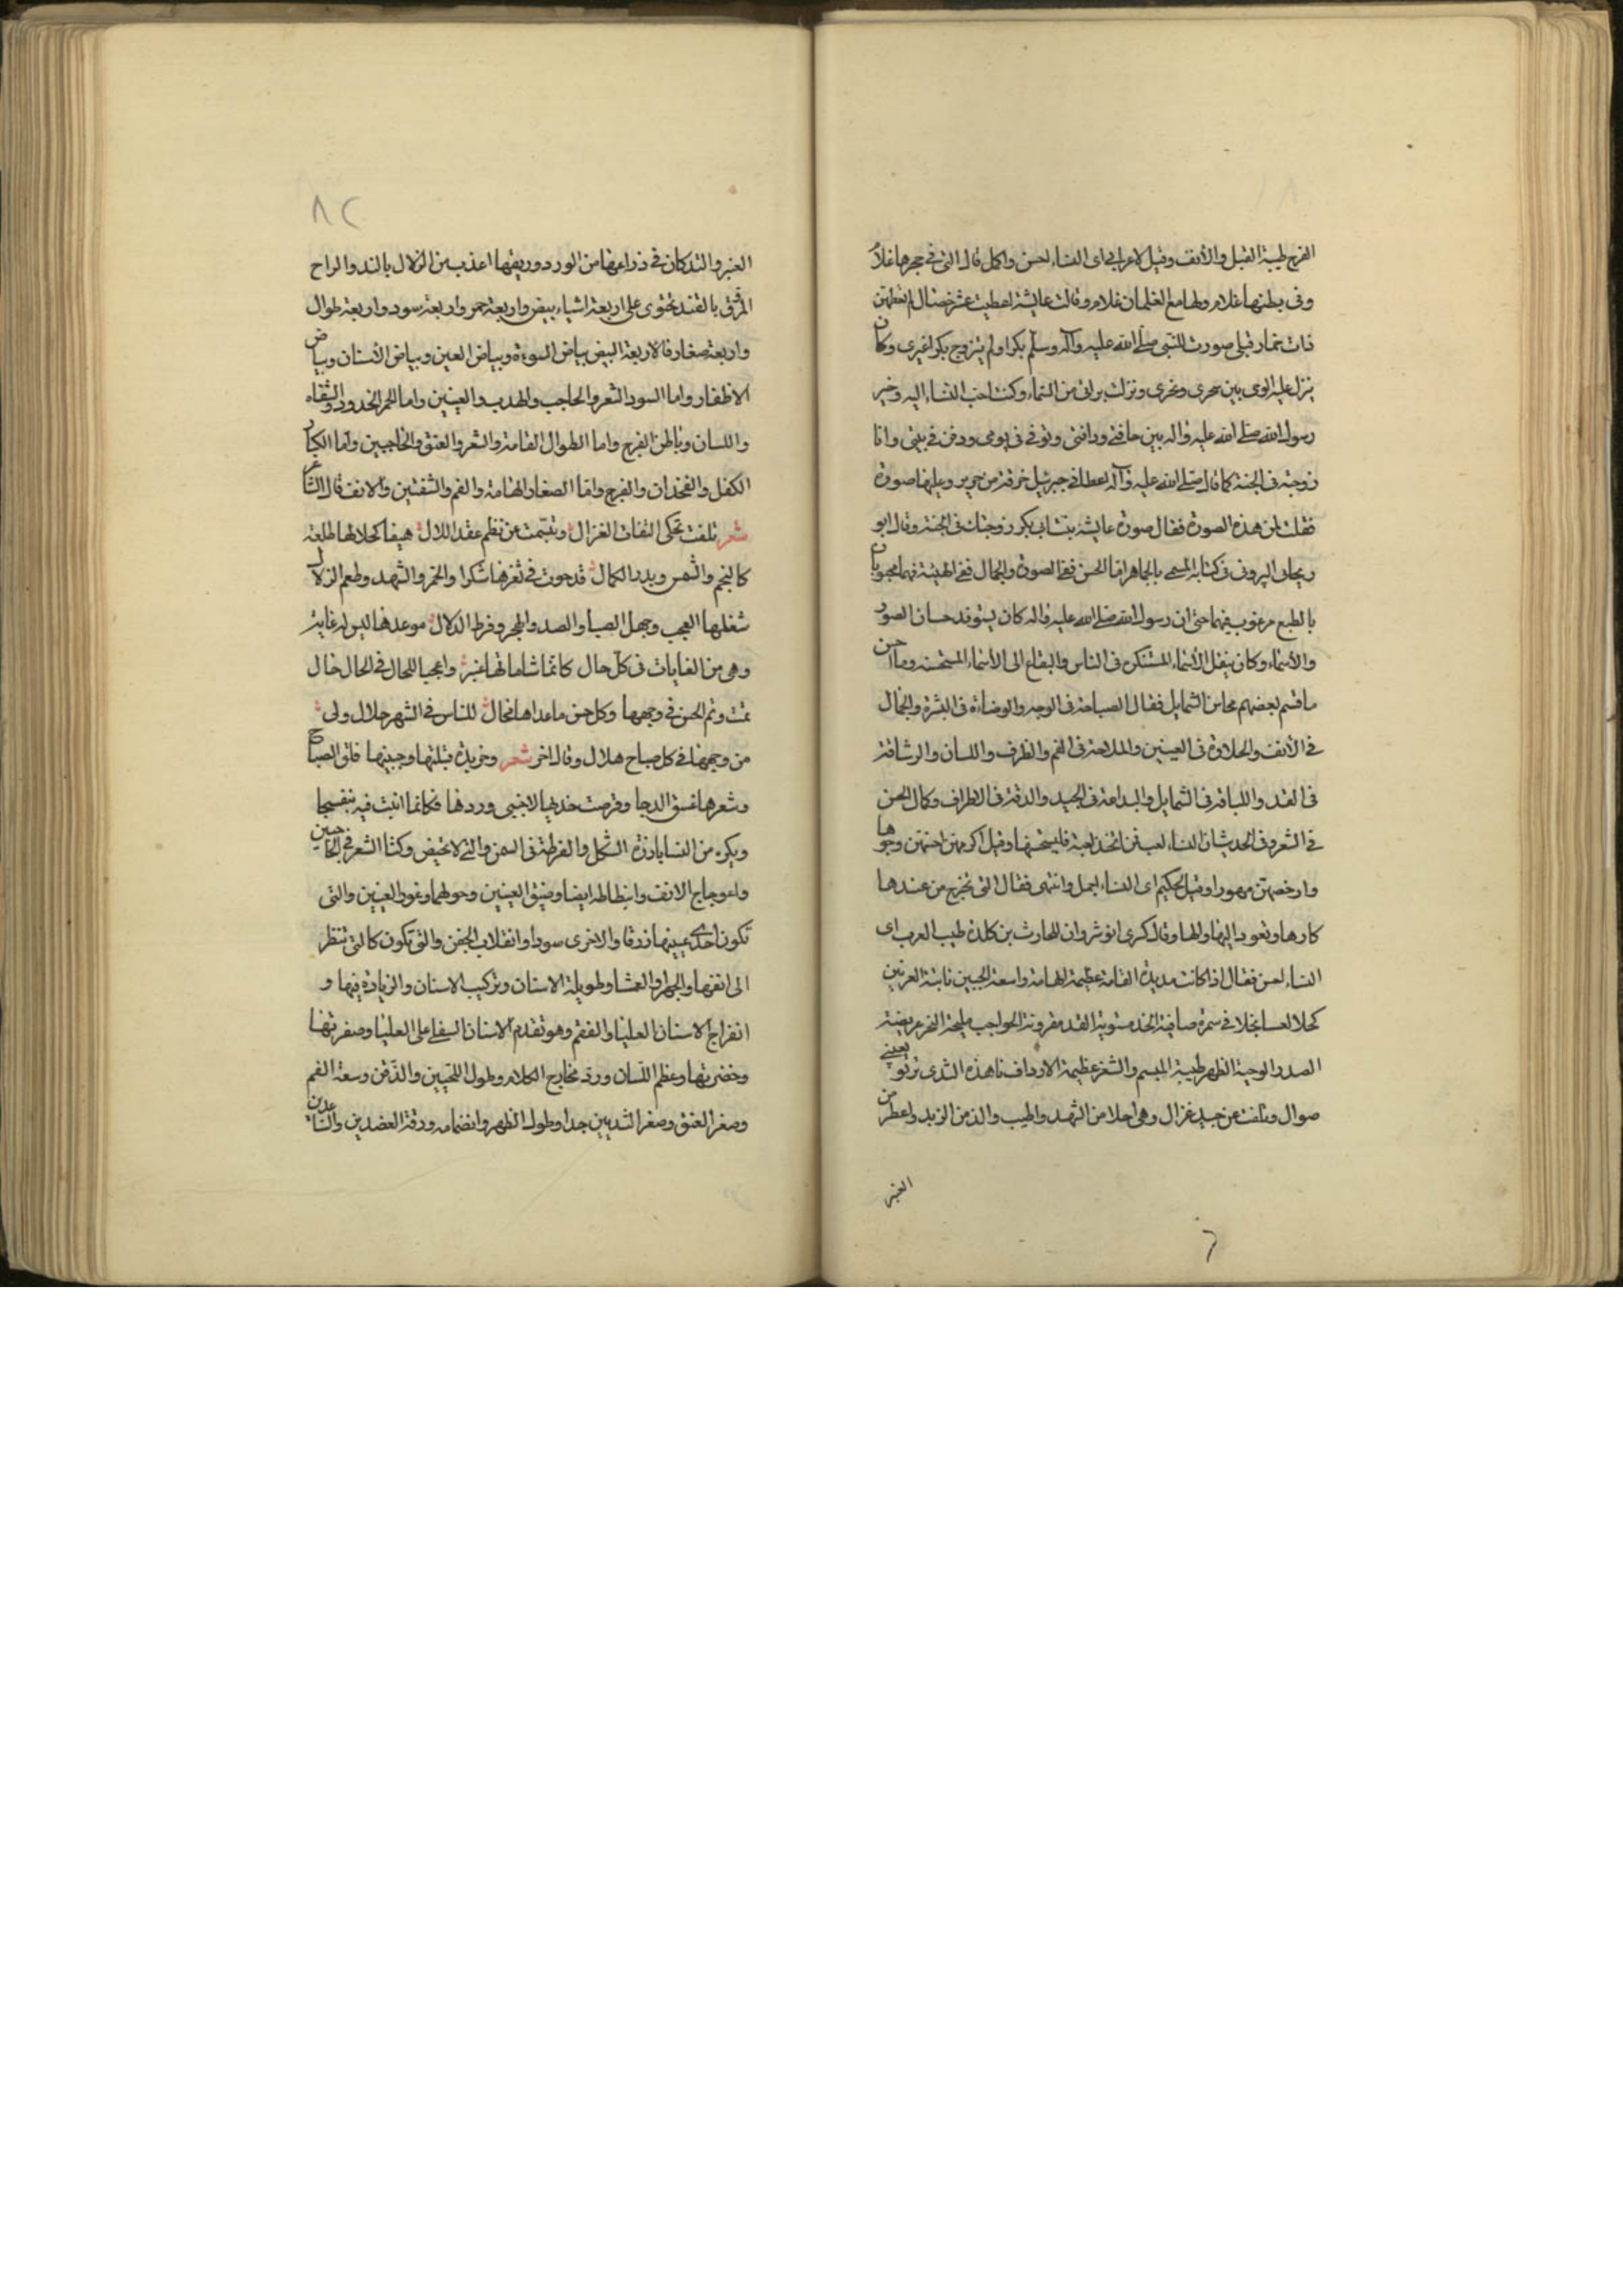 الفرج طيبة القبل والأنف وقيل لاعرابي اى النساء احسن واكمل قال التى في حجرها غلام
وفى بطنها غلام ولها مع الغلمان غلام وقالت عايشة اعطيت عشر خصال لم تعطهن
ذات خمار قبلى صورت للنبى صلى الله عليه وآله وسلم بكرا ولم يتزوج بكرا غيرى وكان
ينزل عليه الوحى بين سحرى ونحرى ونزلت براتى من السماء وكنت احب النساء اليه وخير
رسول الله صلى الله عليه واله بين حاقنتى وذاقنتى وتوفى فى يومى ودفن فى بيتى وانا
زوجته فى الجنة كما قال صلى الله عليه وآله اعطانى جبرئيل خرقة من حرير وعليها صورة
فقلت لمن هذه الصورة فقال صورة عايشة بنت ابى بكر زوجتك فى الجنة وقال ابو
ريحان البيرونى فى كتابه المسمى بالجماهر اما الحسن ففى الصورة والجمال ففى الهيئة فهما محبوبان
بالطبع مرغوب فيهما حتى ان رسول الله صلى الله عليه واله كان يستوفد حسان الصور
والأسماء وكان ينقل الأسماء المستنكره فى الناس والبقاع الى الأسماء المستحسنه وما احسن
ما قسم بعضهم محاسن الشمايل فقال الصباحة فى الوجه والوضاءة فى البشرة والجمال
في الأنف والحلاوة فى العينين والملاحة فى الفم والظرف واللسان والرشاقة
فى القد واللباقة فى الشمايل والبداعة فى الجيد والدقة فى الاطراف وكمال الحسن
في الشعر وفى الحديث ان النساء لعب فمن اتخذ لعبة فليستحسنها وقيل اكرمهن احسنهن وجوها
وارخصهن مهورا وقيل لحكيم اى النساء اجمل وانتهى فقال التى تخرج من عندها
كارها وتعود اليها ولها وقال كسرى انوشروان للحارث بن كلدة طبيب العرب اى
النساء احسن فقال اذا كانت مديدة القامة عظيمة الهامة واسعة الجبين نابتة العرنين
كحلا لعسا نجلا في سمرة صافية الخد مستوية القد مقرونة الحواجب مليحة النحر عريضة
الصدر الوجية الظهر طيبة المبسم والثغر عظيمة الارداف ناهذه الثدى ترنو بعينى
صوال وتلفت عن جيد غزال وهى احلا من الشهد واطيب والذ من الزبد واعطر من
العنبر
٨٢
العنبر والند كان في ذراعها من الورد وريقها اعذب من الزلال بالند والراح
المرقق بالقند تحتوى على اربعة اشياء بيض واربعة حمر واربعة سود واربعة طوال
واربعة صغار فالاربعة البيض بياض السوءة وبياض العين وبياض الأسنان وبياض
الاظفار واما السود الشعر والحاجب والهدب والعينين واما الحمر الخدود والشفاه
واللسان وباطن الفرج واما الطوال القامة والشعر والعنق والحاجبين واما الكبار
الكفل والفخذان والفرج واما الصغار الهامة والفم والشفتين والانف قال الشاعر
شعر تلفت تحكى التفات الغزال وتبسمت عن نظم عقد اللال هيفا كحلا لها طلعة
كالنجم والشمس وبدر الكمال قد حوت في ثغرها سكرا والخمر والشهد وطعم الزلال
شغلها العجب وجهل الصبا والصد والهجر وفرط الدلال موعدها ليس له غاية
وهى من الغايات فى كل حال كانما شاماتها عنبر واعجبا للحال في الحال خال
تمت وتم الحسن في وجهها وكل حسن ما عداها محال للناس في الشهر هلال ولى
من وجهها في كل صباح هلال وقال اخر شعر وخريدة قبلتها وجبينها فلق الصباح
وشعرها غسق الدجا وقرصت خديها لاجنى وردها فكانما انبت فيه بنفسجا
ويكره من النسا بادنة الشكل والفرطة فى السمن والتى لا تحيض وكثا الشعر في الحاجبين
واعوجاج الانف وانبطاطه ايضا وضيق العينين وحولهما وغور العينين والتى
تكون احدى عينيها زرقا والاخرى سودا وانقلاب الجفن والتى تكون كالتى تنظر
الى انفها والجهرا والعمشا وطويلة الاسنان وتركيب الاسنان والزيادة فيها و
انفراج الاسنان العليا والفقم وهو تقدم الاسنان السفلى على العليا وصفرتها
وخضرتها وعظم اللسان وردة مخارج الكلام وطول اللحيين والذقن وسعة الفم
وصغر العنق وصغر الثديين جدا وطول الظهر وانضمامه ورقة العضدين والساعدين